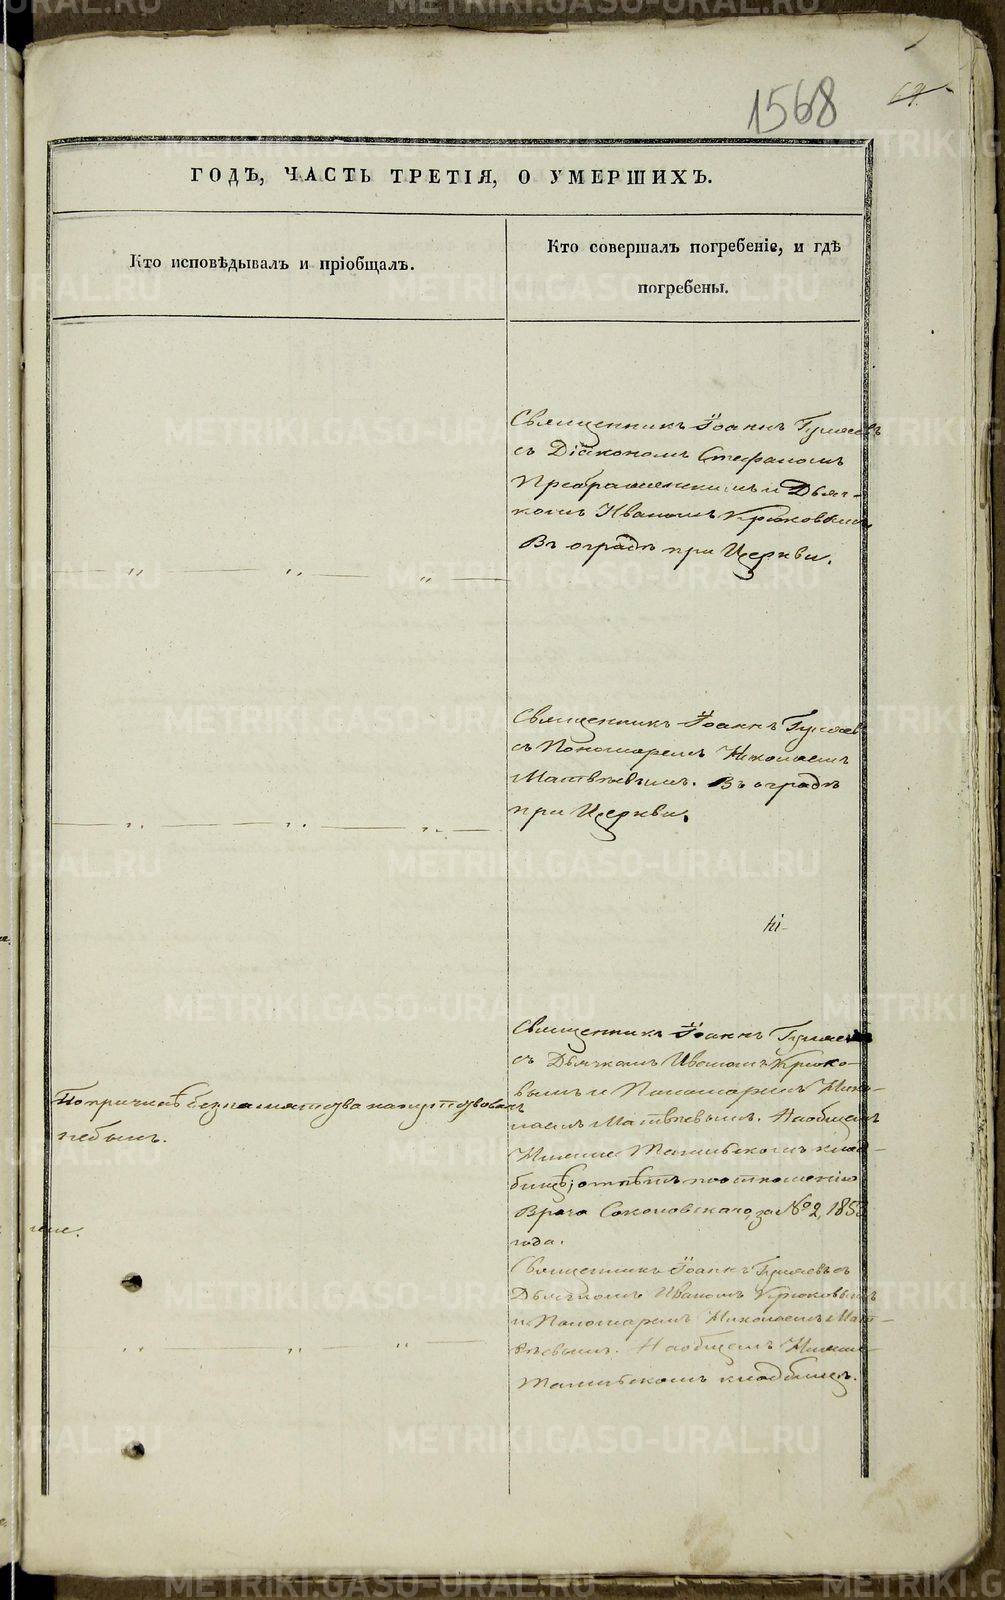 1568
64.
ГОДЪ, ЧАСТЬ ТРЕТІЯ, О УМЕРШИХЪ.
Кто исповѣдывалъ и пріобщалъ.
Кто совершалъ погребеніе, и гдѣ
погребены.
Священникъ Іоаннъ Гуляевъ
съ Діакономъ Стефаномъ
Преображенскимъ и Дьяч-
комъ Иваномъ Крюковымъ
Въ оградѣ при Церкви.
Священникъ Іоаннъ Гуляев
съ Пономаремъ Николаемъ
Матвѣевымъ. Въ оградѣ
при Церкви.
Священникъ Іоаннъ Гуляев
съ Дьячкомъ Иваномъ Крюко-
вымъ и Пономаремъ Нико-
лаемъ Матвѣевымъ. На общемъ
Нижне Тагильскомъ клад-
бищѣ, отпѣтъ по отношенію
Врача Соколовскаго, за № 2, 1853
года.
По причинѣ безпамятства напутствованъ
небылъ.
Священникъ Іоаннъ Гуляевъ съ
Дьячкомъ Иваномъ Крюковымъ
и Пономаремъ Николаемъ Мат-
вѣевымъ. На общемъ Нижне
Тагильскомъ кладбищѣ.
METRIKI.GASO-URAL.RU